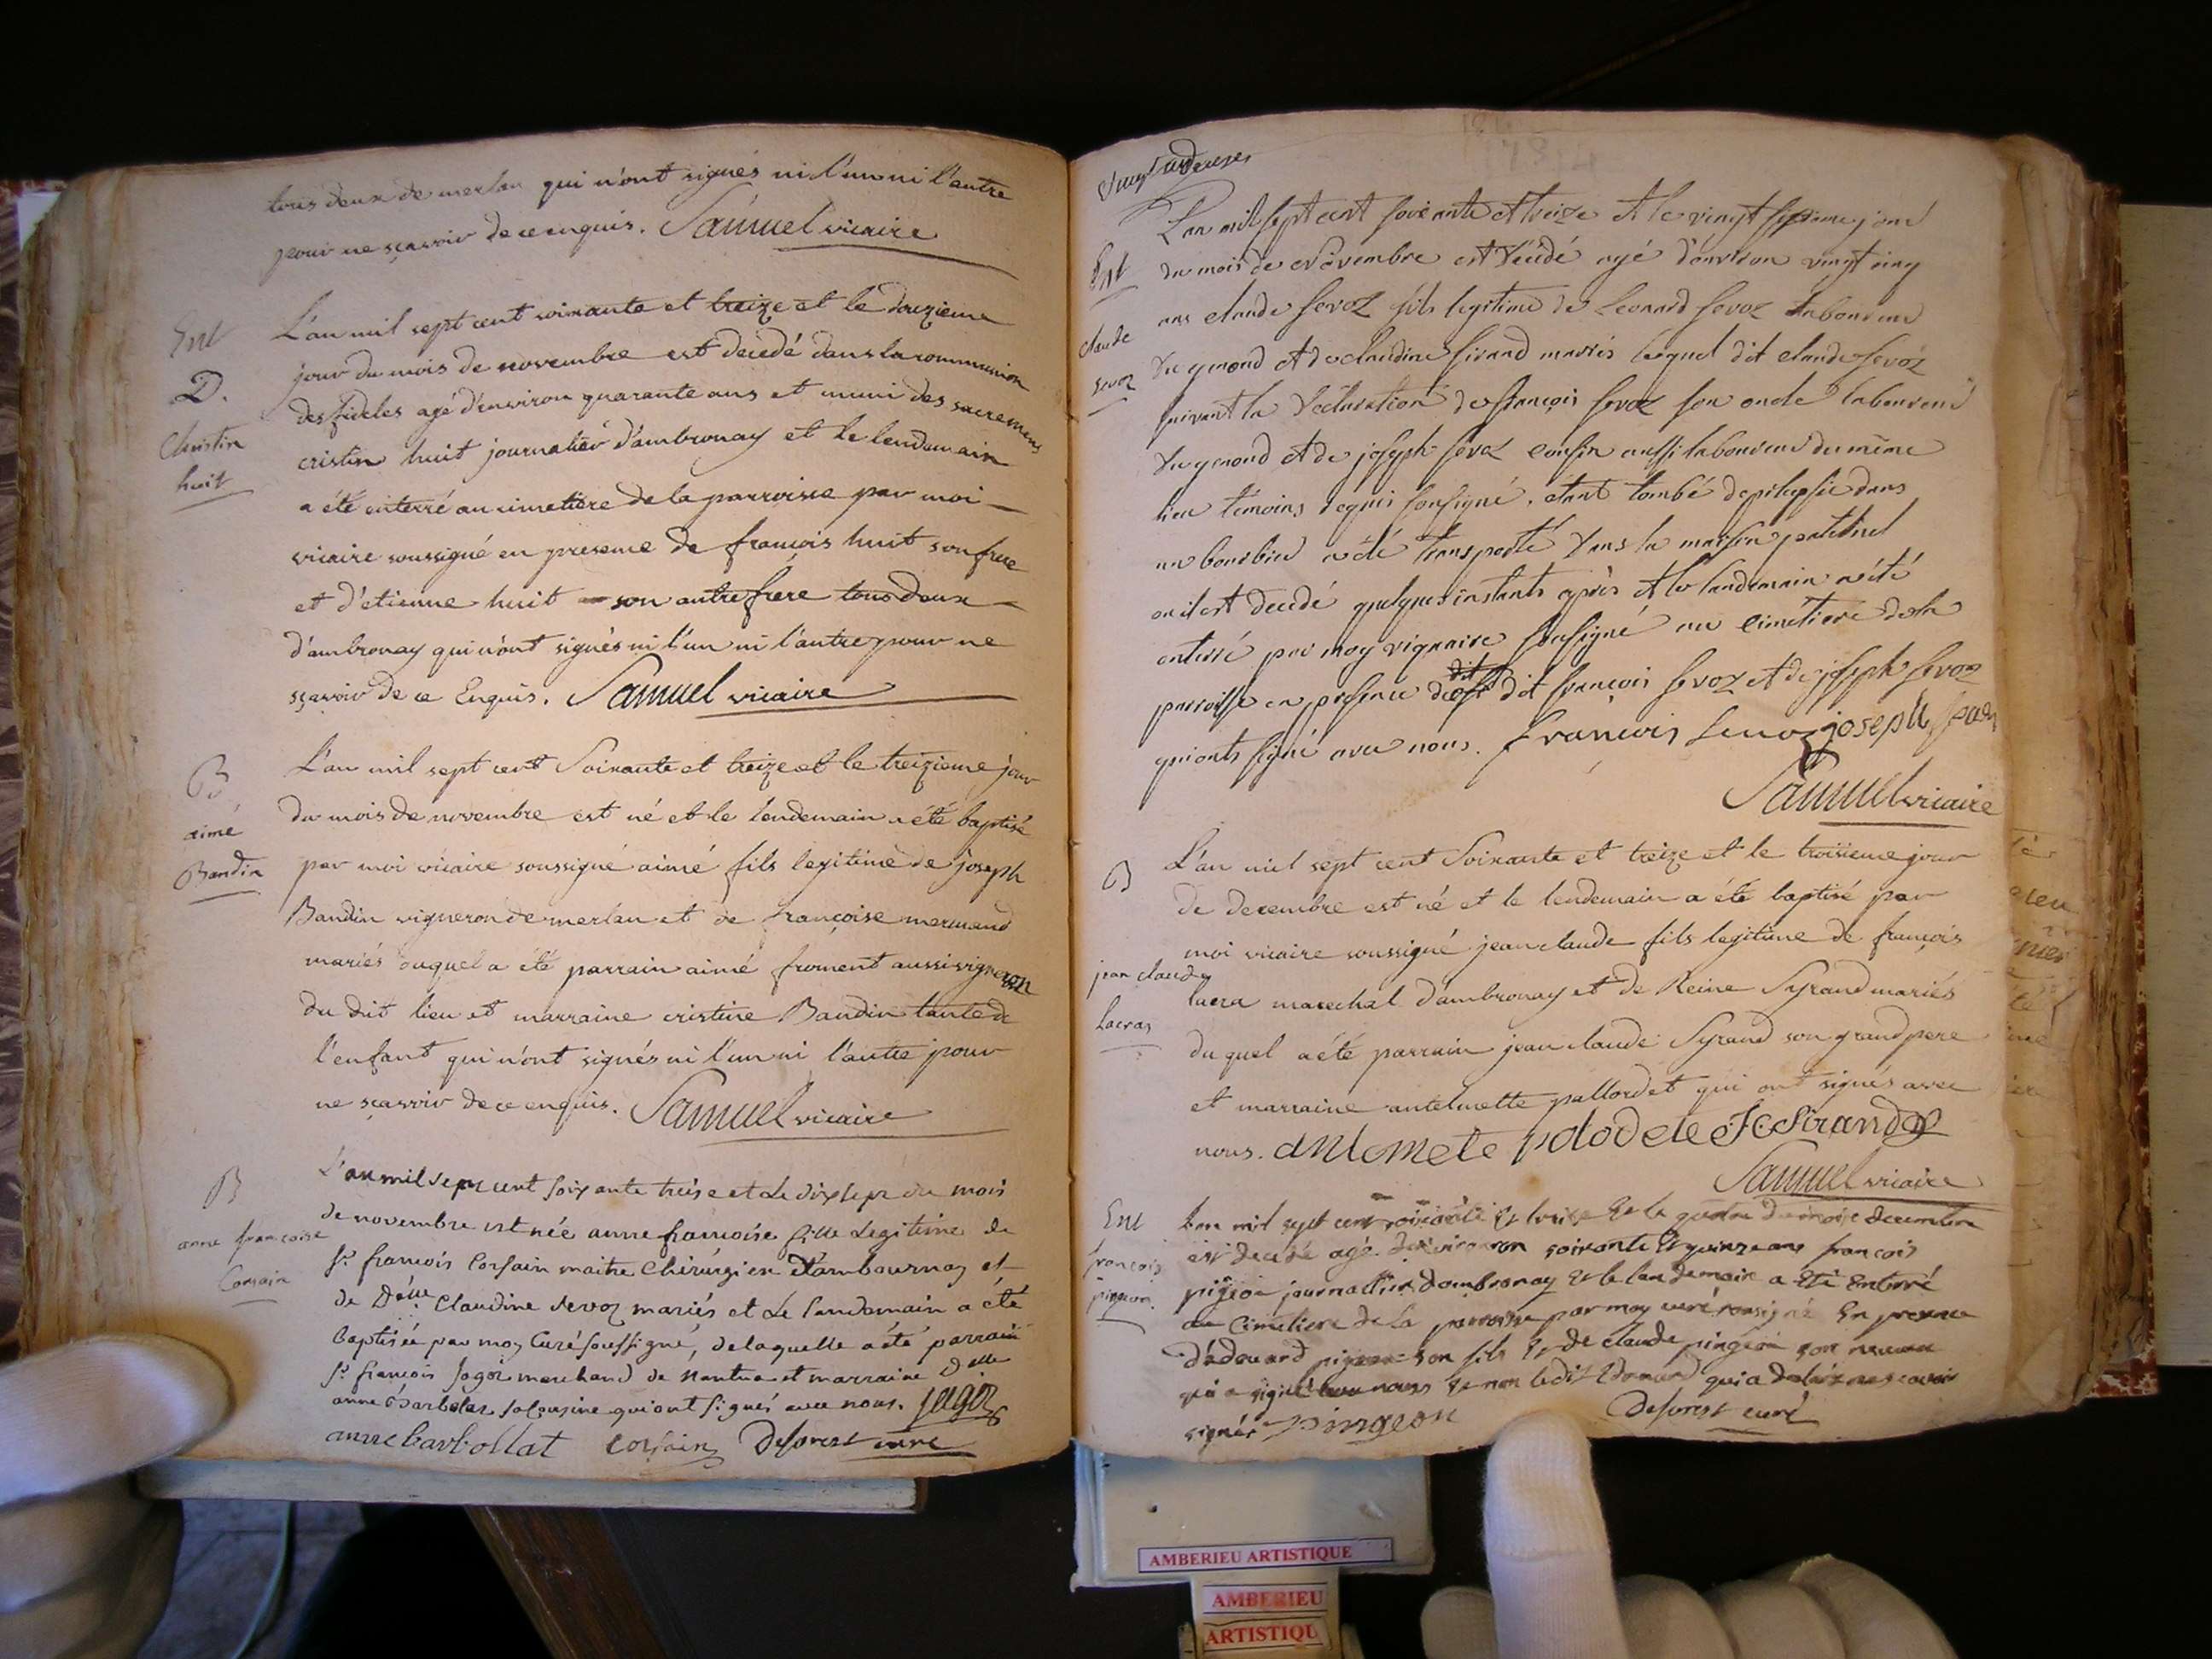 tous deux de merlan qui n'ont signés ni l'un ni l'autre
pour ne sçavoir de ce enquis. Samuel vicaire
Ent
D.
Christin
huit
L'an mil sept cent soixante et treize et le douzieme
jour du mois de novembre est decedé dans la communion
des fideles agé d'environ quarante ans et muni des sacremens
cristin huit journalier d'ambronay et le lendemain
a été enterré au cimetière de la parroisse par moi
vicaire soussigné en presence de françois huit son frere
et d'etienne huit son autre frère tous deux
d'ambronay qui n'ont signés ni l'un ni l'autre pour ne
sçavoir de ce Enquis. Samuel vicaire
B
aimé
Baudin
L'an mil sept cent Soixante et treize et le treizieme jour
du mois de novembre est né et le lendemain a été baptisé
par moi vicaire soussigné aimé fils legitime de joseph
Baudin vigneron de merlan et de françoise mermand
mariés duquel a été parrain aimé froment aussi vigneron
du dit lieu et marraine cristine Baudin tante de
l'enfant qui n'ont signés ni l'un ni l'autre pour
ne sçavoir de ce enquis. Samuel vicaire
B
anne françoise
Corsain
L'an mil sept cent soixante treise et le dix sept du mois
de novembre est née anne françoise fille Legitime de
Sr. françois Corsain maitre Chirurgien d'ambournay et
de Délle Claudine sevoz mariés et Le landemain a été
baptisée par moy Curé soussigné, de laquelle a été parrain
Sr. françois Jagoz marchand de Nantua et marraine Délle
anne Barbolat sa cousine qui ont signés avec nous. Jagoz
anne barbollat Corsain Deforest curé
Ent
claude
sevoz
L'an mil sept cent soixante et treize et le vingt septieme jour
du mois de Novembre est décédé agé d'environ vingt cinq
ans claude sevoz fils legitime de Leonard sevoz laboureur
du genoud et de claudine sirand mariés lequel dit claude sevoz
suivant la déclaration de françois sevoz son oncle laboureur
du genoud et de joseph sevoz cousin aussi laboureur du même
lieu témoins requis soussigné, etant tombé d'epilepsie dans
un bourbier a été transporté dans la maison paternel
ou il est decedé quelques instants après et le landemain a été
enterré par moy viquaire soussigné au cimétiere de la
parroisse en presence du dit françois sevoz et de joseph sevoz
qui onts signé avec nous. françois sevoz joseph sevoz
Samuel vicaire
B
jean claude
Lacras
L'an mil sept cent Soixante et treize et le troisieme jour
de decembre est né et le lendemain a été baptisé par
moi vicaire soussigné jean claude fils legitime de françois
lacra marechal d'ambronay et de Reine Syrand mariés
du quel a été parrain jean claude Syrand son grand pere
et marraine antelmette pallordet qui ont signés avec
nous. antemete polodete JC Sirand
Samuel vicaire
Ent
françois
pingeon.
L'an mil sept cent soixante et treize et le quatre du mois decembre
est decedé agé d'environ soixante et quinze ans françois
pigeon journallier d'ambronay et le landemain a eté Enterré
au Cimetiere de la parroisse par moy curé sousigné En presence
d'edouard pigeon son fils et de Claude pingeon son neveu
qui a signé avec nous et non ledit Edouard qui a declaré ne sçavoir
signer Pingeon Deforest curé
AMBERIEU ARTISTIQUE
AMBERIEU
ARTISTIQU